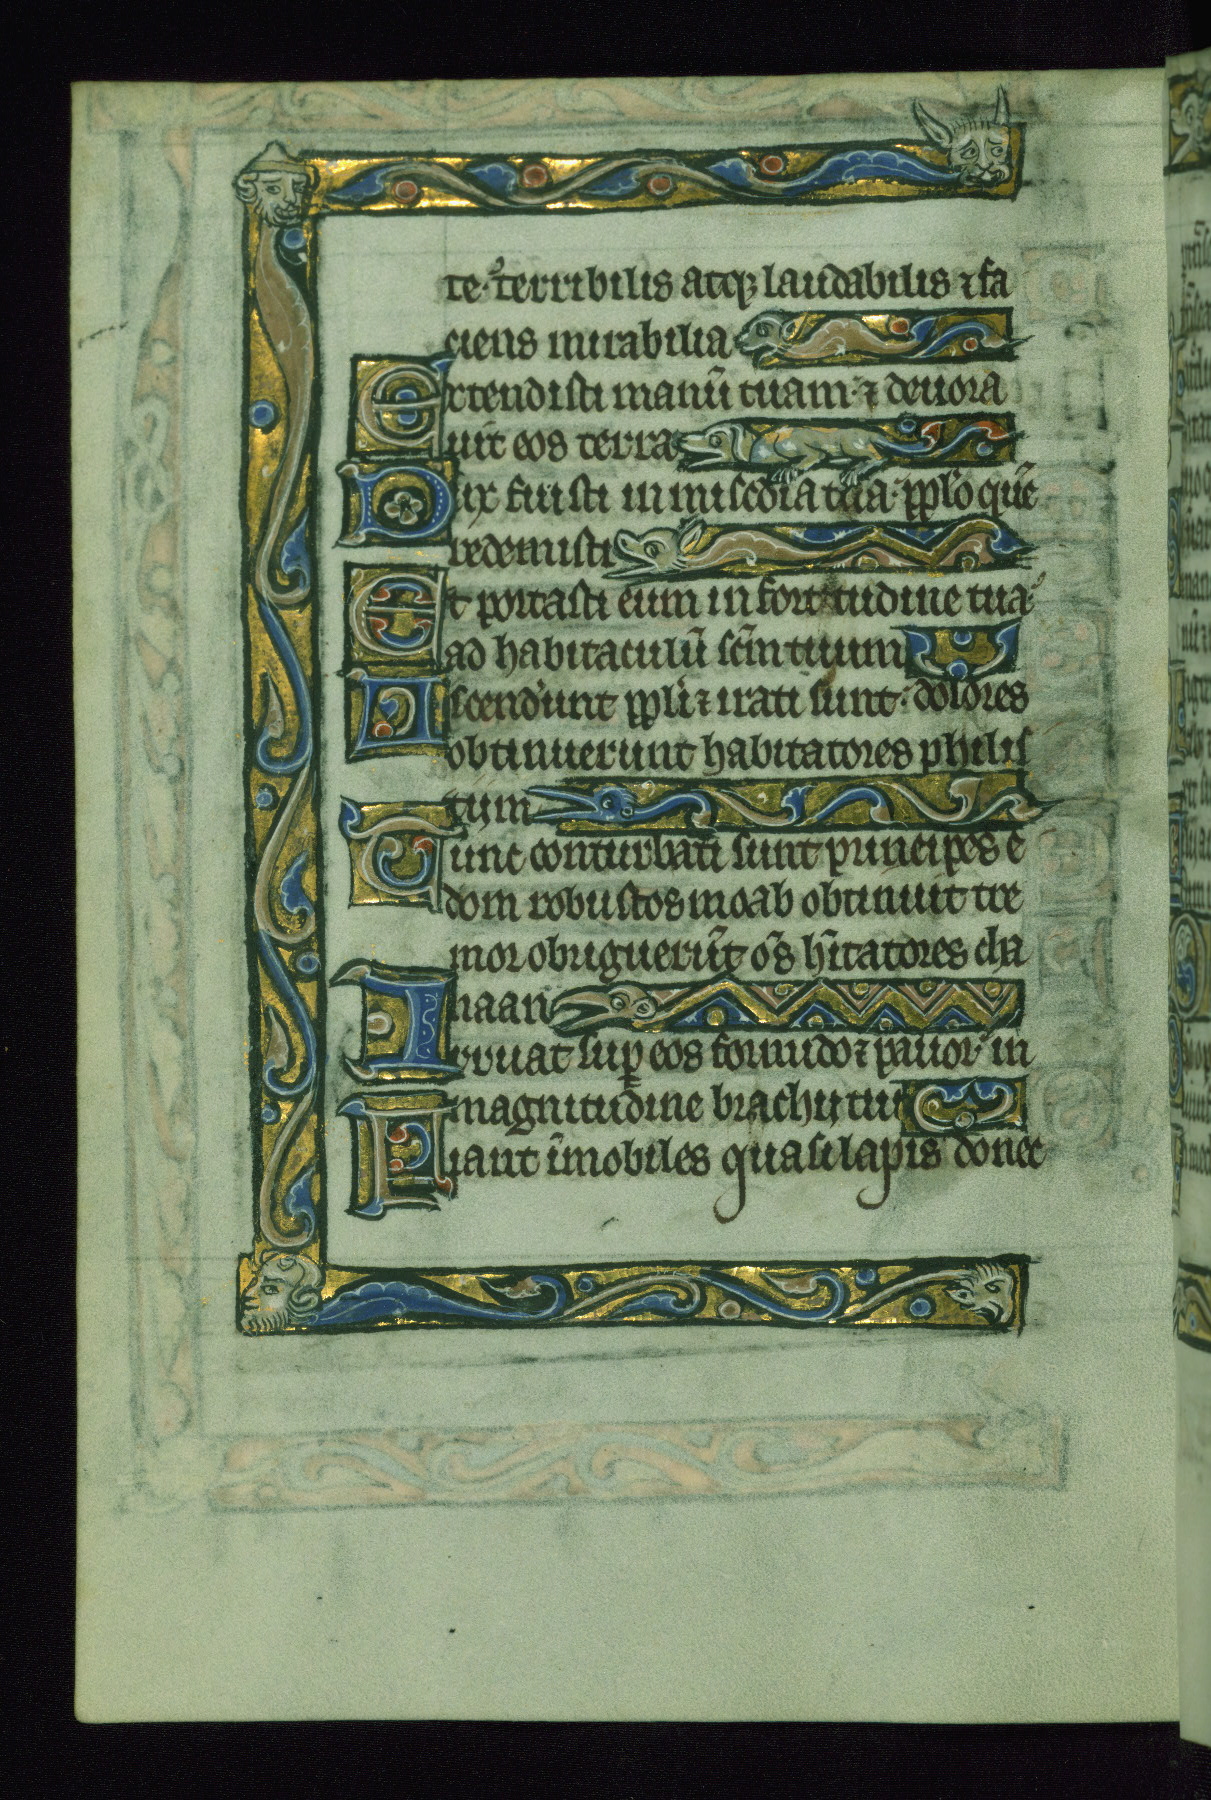 te· terribilis atq; laudabilis ⁊ fa
ciens mirabilia
Extendisti manū tuam· ⁊ deuora
uit eos terra
Dux fuisti in misc̄dia tua· pp̄lo quē
redemisti
Et portasti eum in fortitudine tua·
ad habitaculū sc̄m tuum
Ascend'unt pp̄li ⁊ irati sunt· dolores
obtinuerunt habitatores philis
tijm
Tunc conturbati sunt principes e
dom robustos moab obtinuit tre
mor obriguerūt om̄s hītatores cha
naan
Irruat sup eos formido ⁊ pauor· in
magnitudine brachij tui
Fiant īmobiles quasi lapis donec